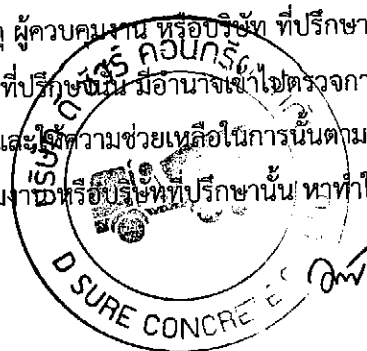 ผู้ควบคุมงาน หรือบริษัท ที่ปรึกษา
ที่ปรึกษานั้น มีอำนาจเข้าไปตรวจกา
และให้ความช่วยเหลือในการนั้นตาม
มงานหรือบริษัทที่ปรึกษานั้น หาทำใ
บริษัท ดี ชัวร์ คอนกรีต
D SURE CONCRETE